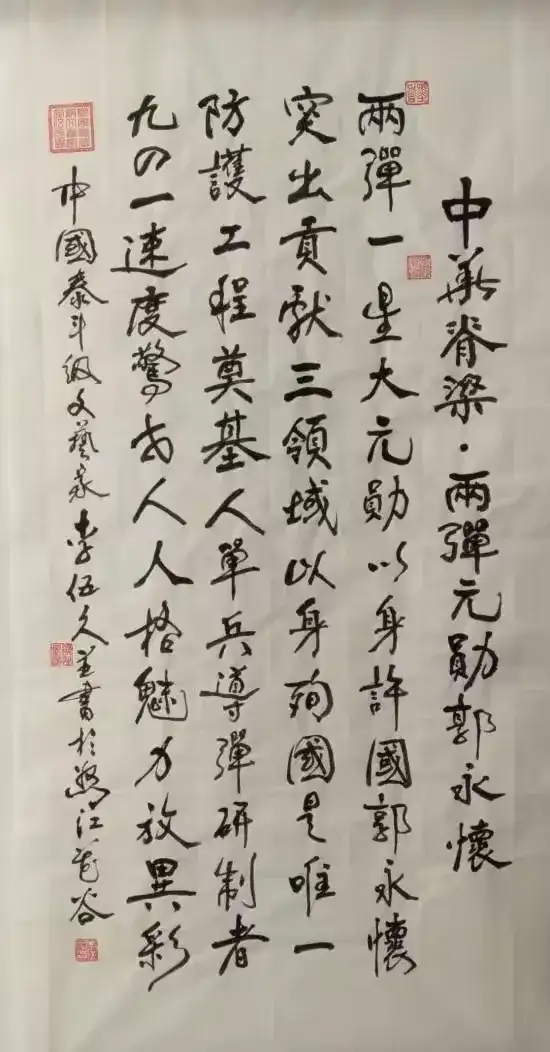 中華脊梁·兩彈元勛郭永懷
兩彈一星大元勛以身許國郭永懷
突出貢獻三領域以身殉國是唯一
防護工程奠基人單兵導彈研制者
九一速度驚世人人格魅力放異彩
中國泰斗級文藝家李伍久並書於江谷